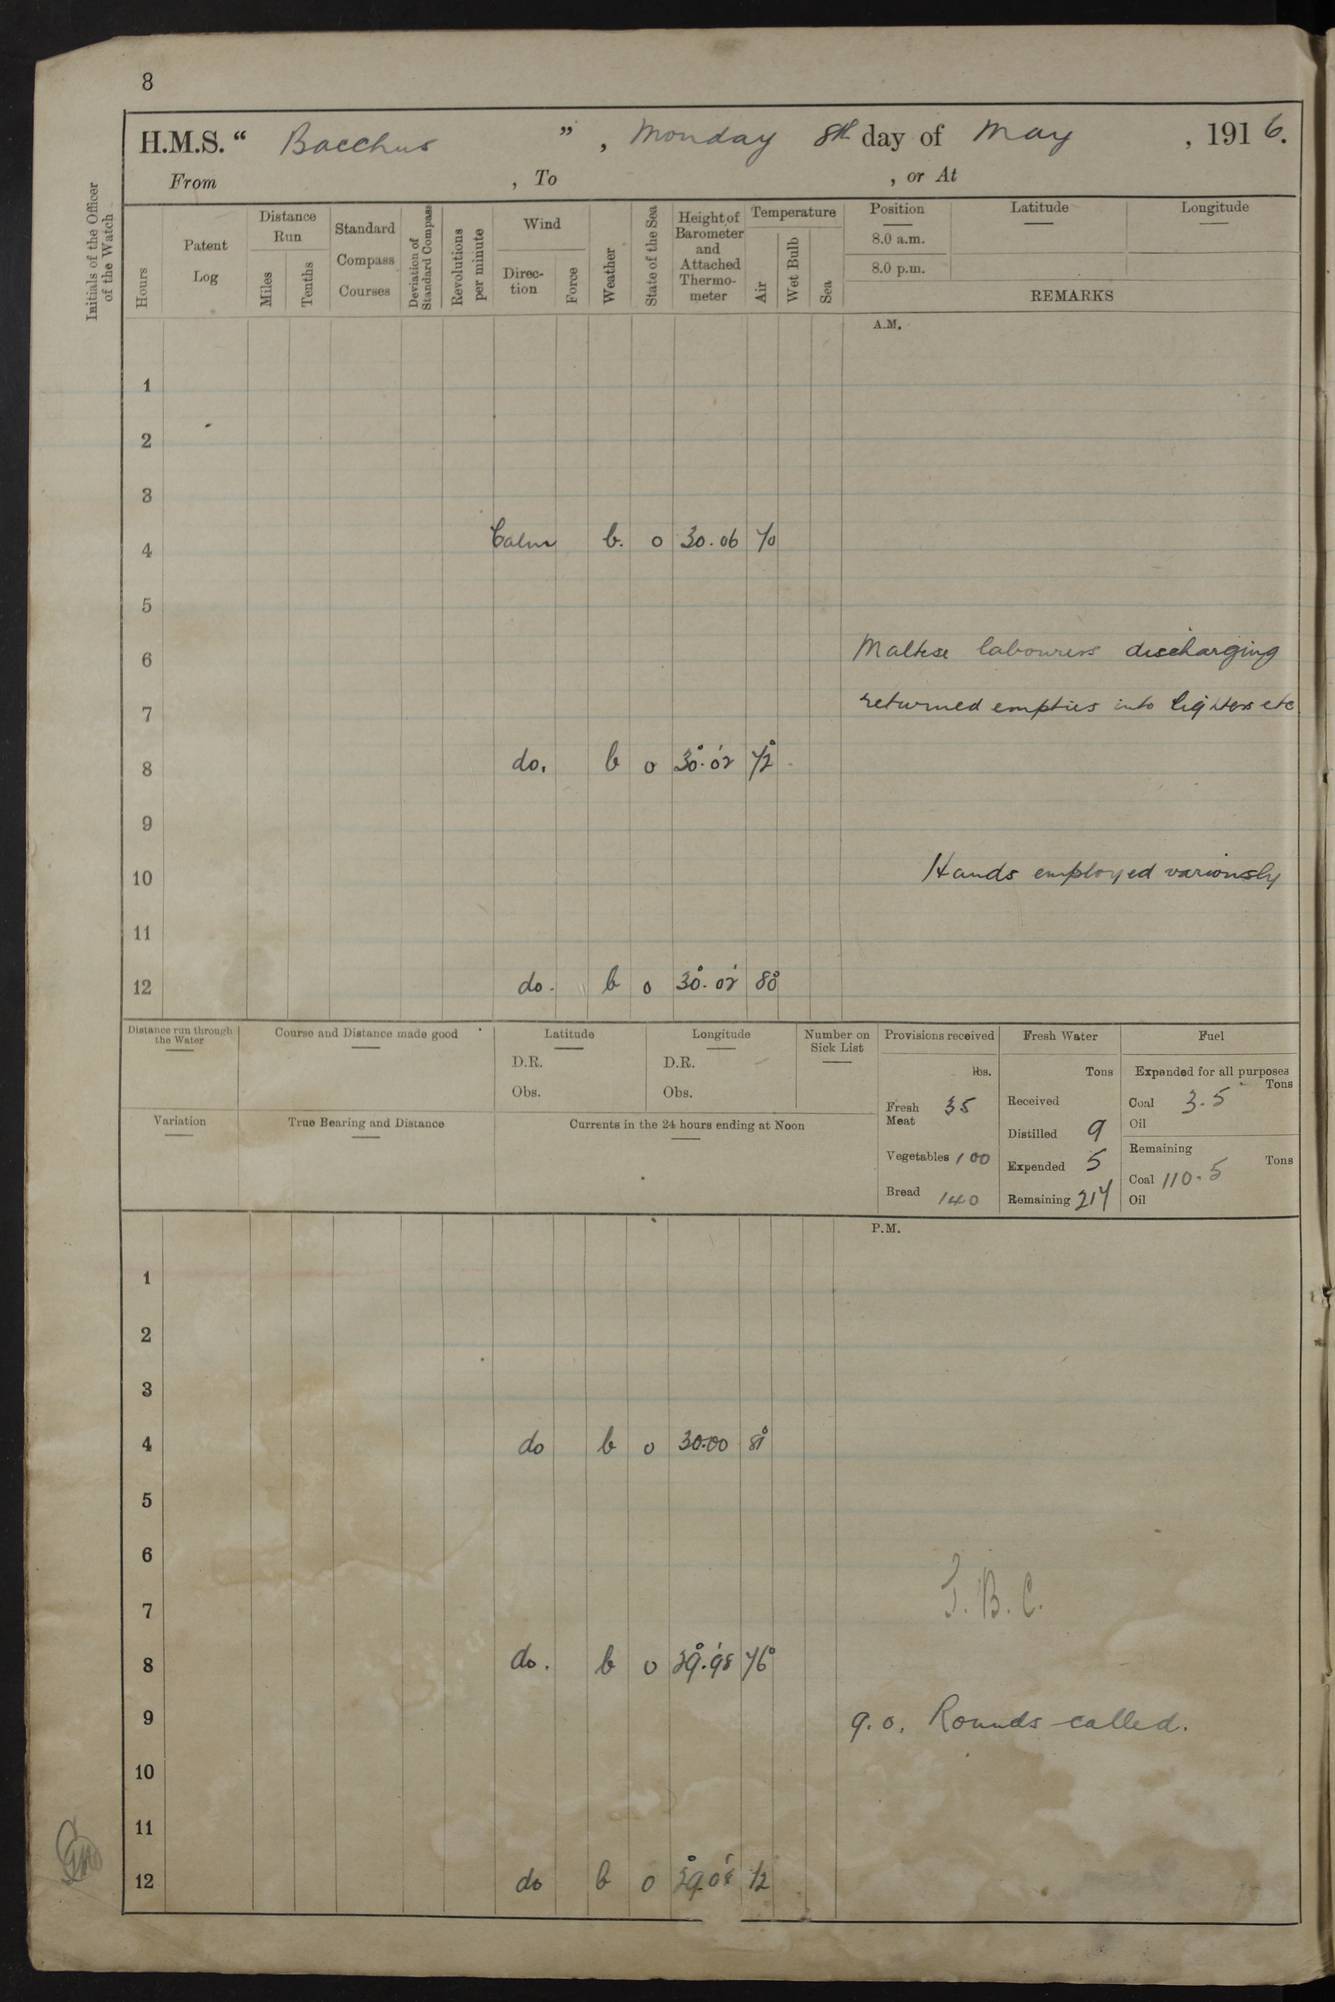 8
H.M.S. “ Bacchus ” , Monday 8th day of May , 1916.
From , To , or At
Initials of the Officer of the Watch
Hours
Patent Log
Distance Run
Miles
Tenths
Standard Compass Courses
Deviation of Standard Compass
Revolutions per minute
Wind
Direc-tion
Force
Weather
State of the Sea
Height of Barometer and Attached Thermo-meter
Temperature
Air
Wet Bulb
Sea
Position
8.0 a.m.
8.0 p.m.
Latitude
Longitude
REMARKS
A.M.
1
2
3
4 Calm b. o 30.06 70
5
6 Maltese labourers discharging
7 returned empties into lighters etc
8 do. b o 30.02 72°
9
10 Hands employed variously
11
12 do. b o 30.02 80
Distance run through the Water
Course and Distance made good
Latitude
D.R.
Obs.
Longitude
D.R.
Obs.
Number on Sick List
Provisions received
lbs.
Fresh Meat 35
Vegetables 100
Bread 140
Fresh Water
Tons
Received
Distilled 9
Expended 5
Remaining 217
Fuel
Expended for all purposes
Tons
Coal 3.5
Oil
Remaining
Tons
Coal 110.5
Oil
Variation
True Bearing and Distance
Currents in the 24 hours ending at Noon
P.M.
1
2
3
4 do b o 30.00 81°
5
6
7 J.B.C.
8 do. b o 29.98 76°
9 9.0. Rounds called.
10
11
12 do b o 72